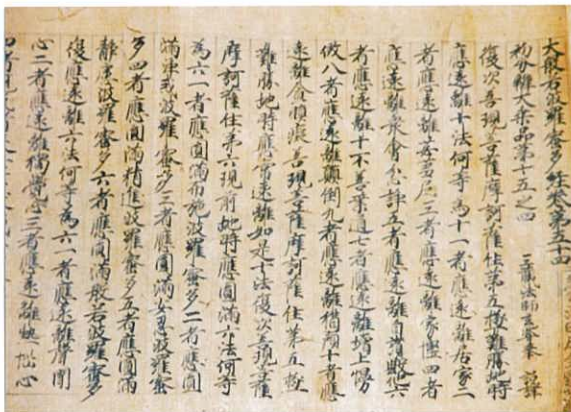 大般若波羅蜜多經卷第五十四
初分辯大乘品第十五之四
三藏法師玄奘奉 詔譯
復次善現菩薩摩訶薩住第五極難勝地時
應遠離十法何等為十一者應遠離居家二
者應遠離苾芻尼三者應遠離家慳四者
應遠離眾會忿諍五者應遠離自讚毀他六
者應遠離十不善業道七者應遠離增上慢
傲八者應遠離顛倒九者應遠離猶預十者應
遠離貪瞋癡善現菩薩摩訶薩住第五極
難勝地時應常遠離如是十法復次善現菩薩
摩訶薩住第六現前地時應圓滿六法何等
為六一者應圓滿布施波羅蜜多二者應圓
滿淨戒波羅蜜多三者應圓滿安忍波羅蜜
多四者應圓滿精進波羅蜜多五者應圓滿
靜慮波羅蜜多六者應圓滿般若波羅蜜多
復應遠離六法何等為六一者應遠離聲聞
心二者應遠離獨覺心三者應遠離熱惱心